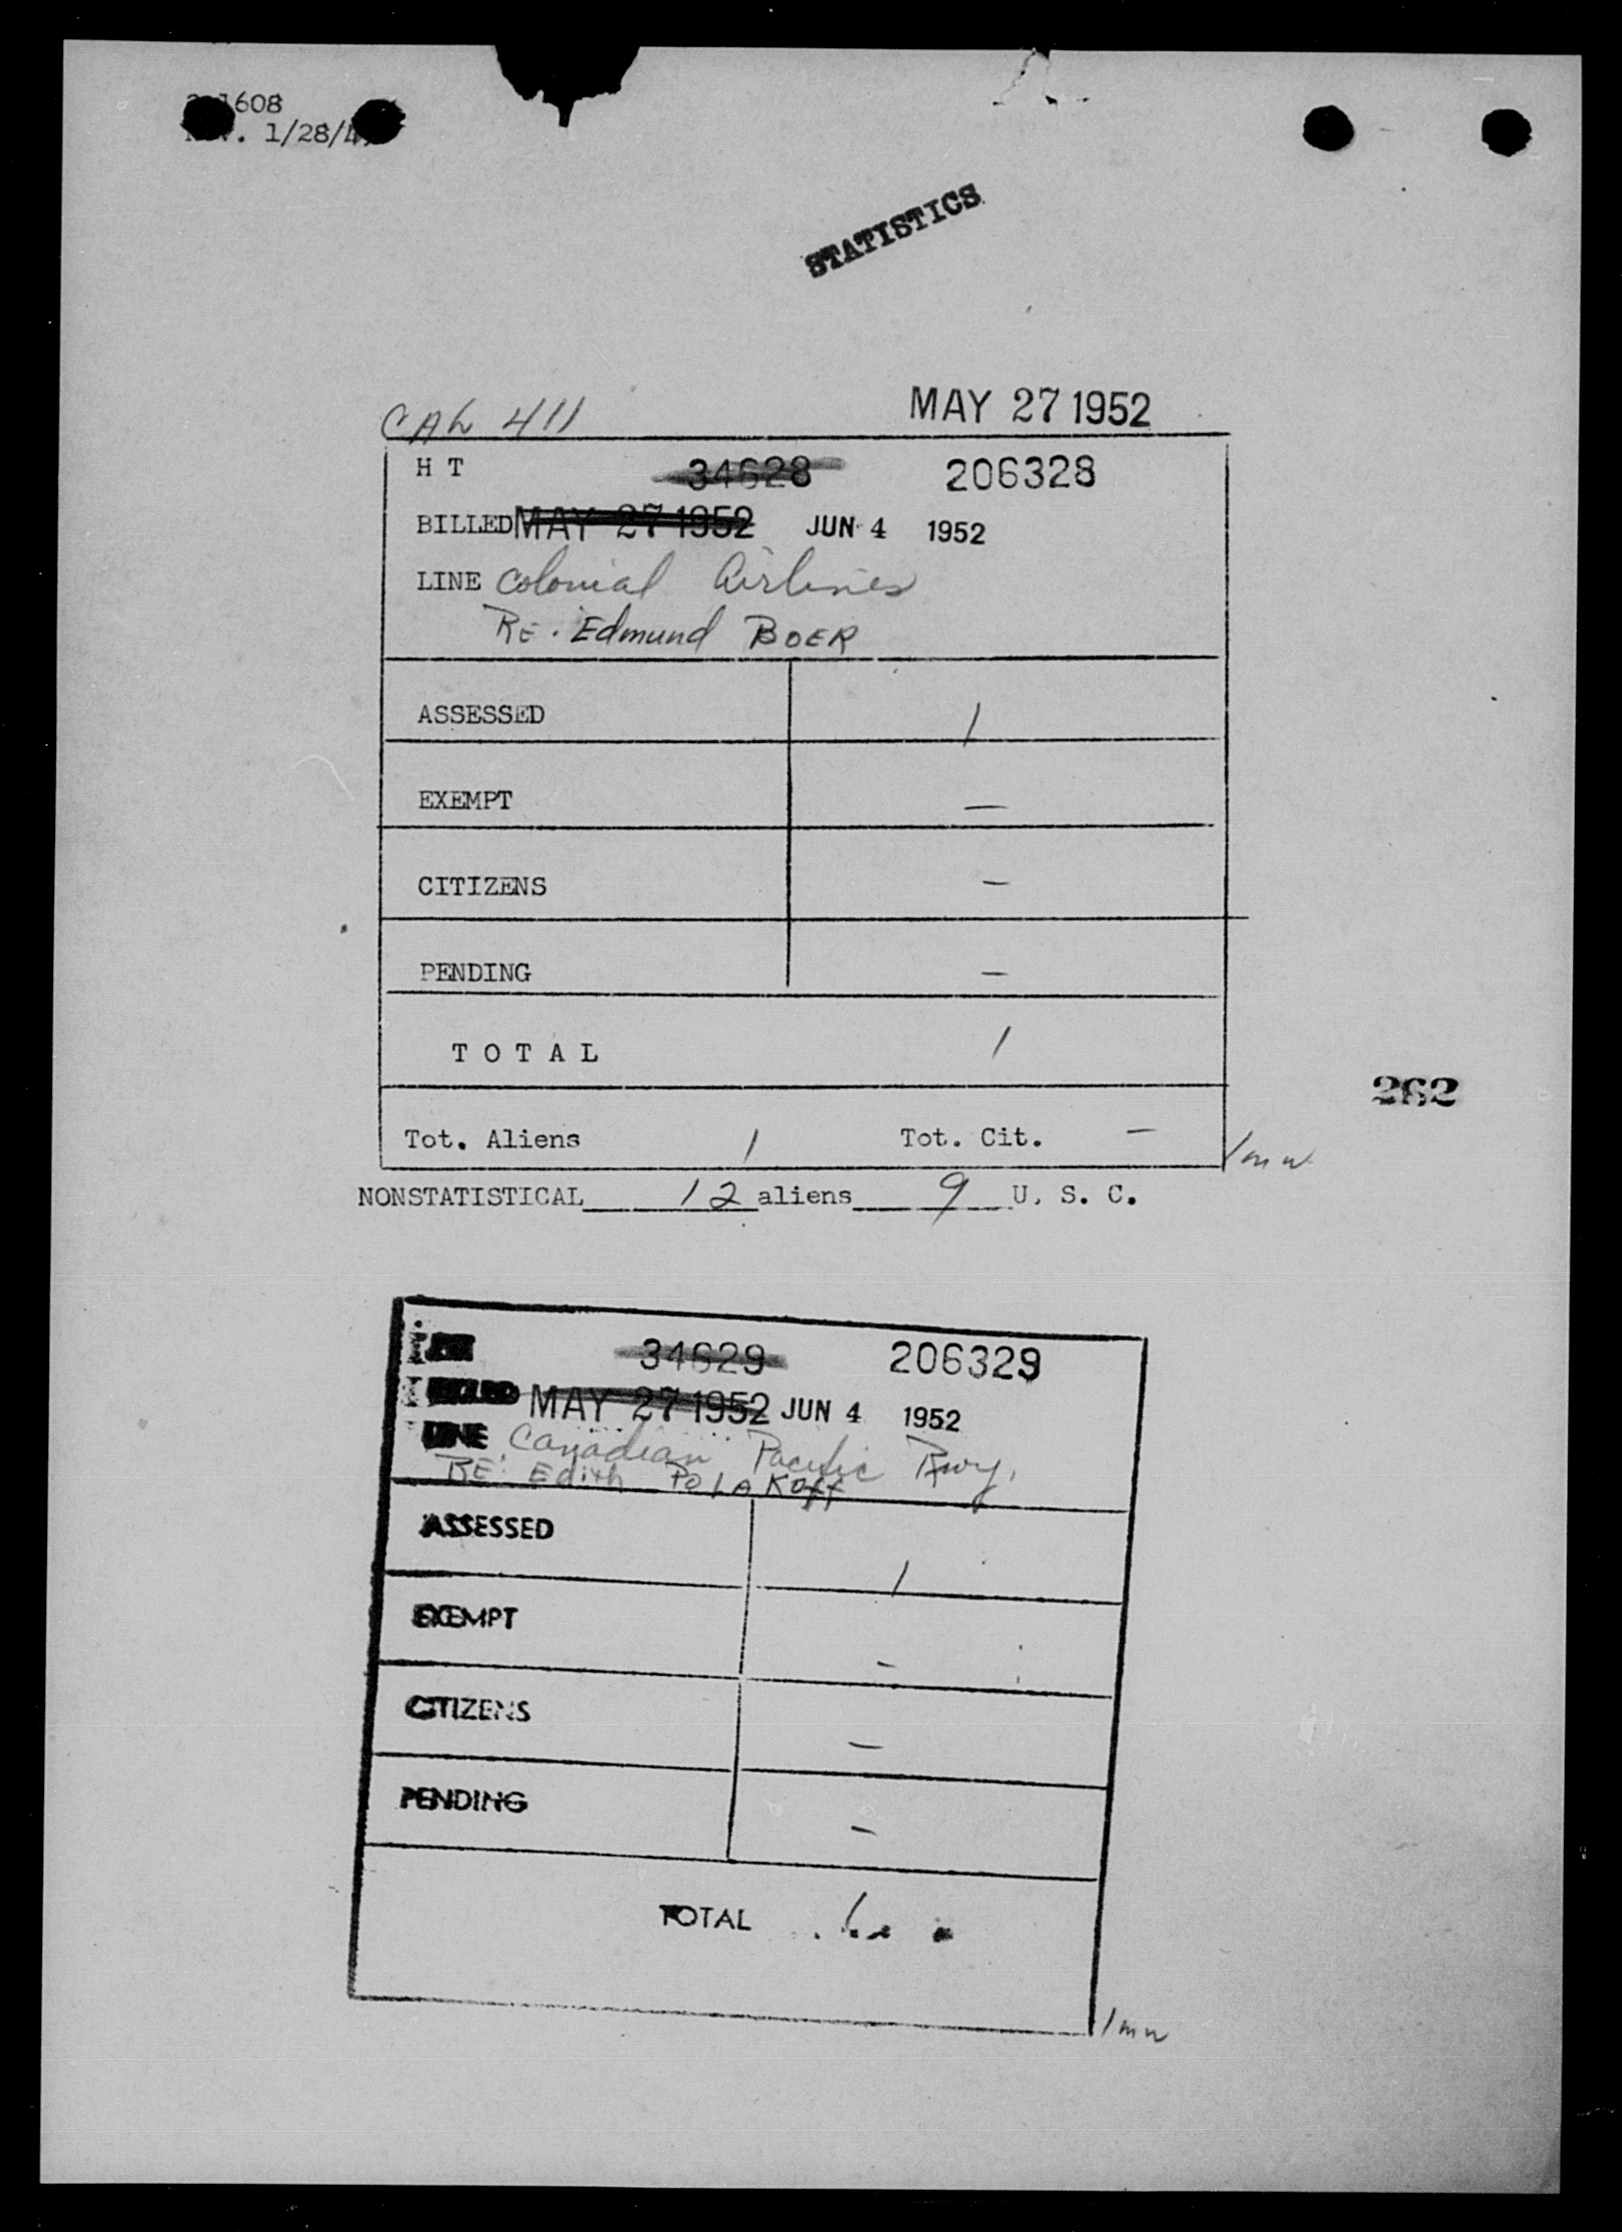 1608
1/28/4
STATISTICS
CAL 411 MAY 27 1952
H T 34628 206328
BILLED MAY 27 1952 JUN 4 1952
LINE Colonial Airlines
RE. Edmund BOER
ASSESSED 1
EXEMPT —
CITIZENS —
PENDING —
T O T A L 1
262
Tot. Aliens 1 Tot. Cit. —
/mw
NONSTATISTICAL 12 aliens 9 U. S. C.
34629 206329
BILLED MAY 27 1952 JUN 4 1952
LINE Canadian Pacific Rwy.
RE: Edith Polakoff
ASSESSED 1
EXEMPT —
CITIZENS —
PENDING —
TOTAL 1
/mw